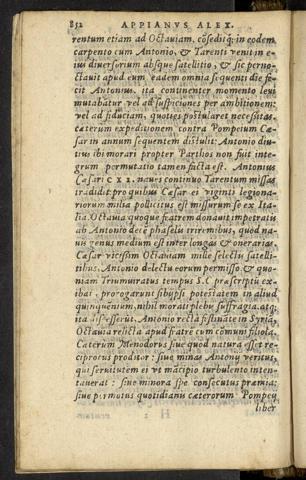 852 APPIANVS ALEX.
rentum etiam ad Octauiam. cōsedítq; in eodem
carpento cum Antonio, & Tarenti venit in e-
ius diuersorium absque satellitio, & sic perno-
ctauit apud eum eadem omnia sequenti die fe-
cit Antonius. ita continenter momento leui
mutabatur vel ad suspiciones per ambitionem:
vel ad fiduciam, quoties postularet necessitas.
cæterum expeditionem contra Pompeium Cæ
sar in annum sequentem distulit: Antonio diu-
tius ibi morari propter Parthos non fuit inte-
grum permutatio tamen facta est. Antonius
Cæsari CXX. naues continuo Tarentum missas
tradidit pro quibus Cæsar ei viginti legiona-
riorum milia pollicitus est missurum se ex Ita-
lia. Octauia quoque fratrem donauit impetratis
ab Antonio decē phaselis triremibus, quod na-
uis genus medium est inter longas & onerarias.
Cæsar vicissim Octauiam mille selectis satelli-
tibus. Antonio delectu eorum permisso. & quo-
niam Triumuiratus tempus S.C. præscriptū ex-
ibat, prorogarunt sibijpsi potestatem in aliud
quinquennium, nihil morati plebis suffragia. atq;
ita discesserūt. Antonio recta festinante in Syriā,
Octauia relicta apud fratrē cum cōmuni filiola.
Cæterum Menodorus siue quod natura esset re-
ciprotus proditor: siue minas Antonij veritus,
qui seruitutem ei vt mācipio turbulento inten-
tauerat: siue minora spe consecutus præmia:
siue permotus quotidianis cæterorum Pompeij
liber